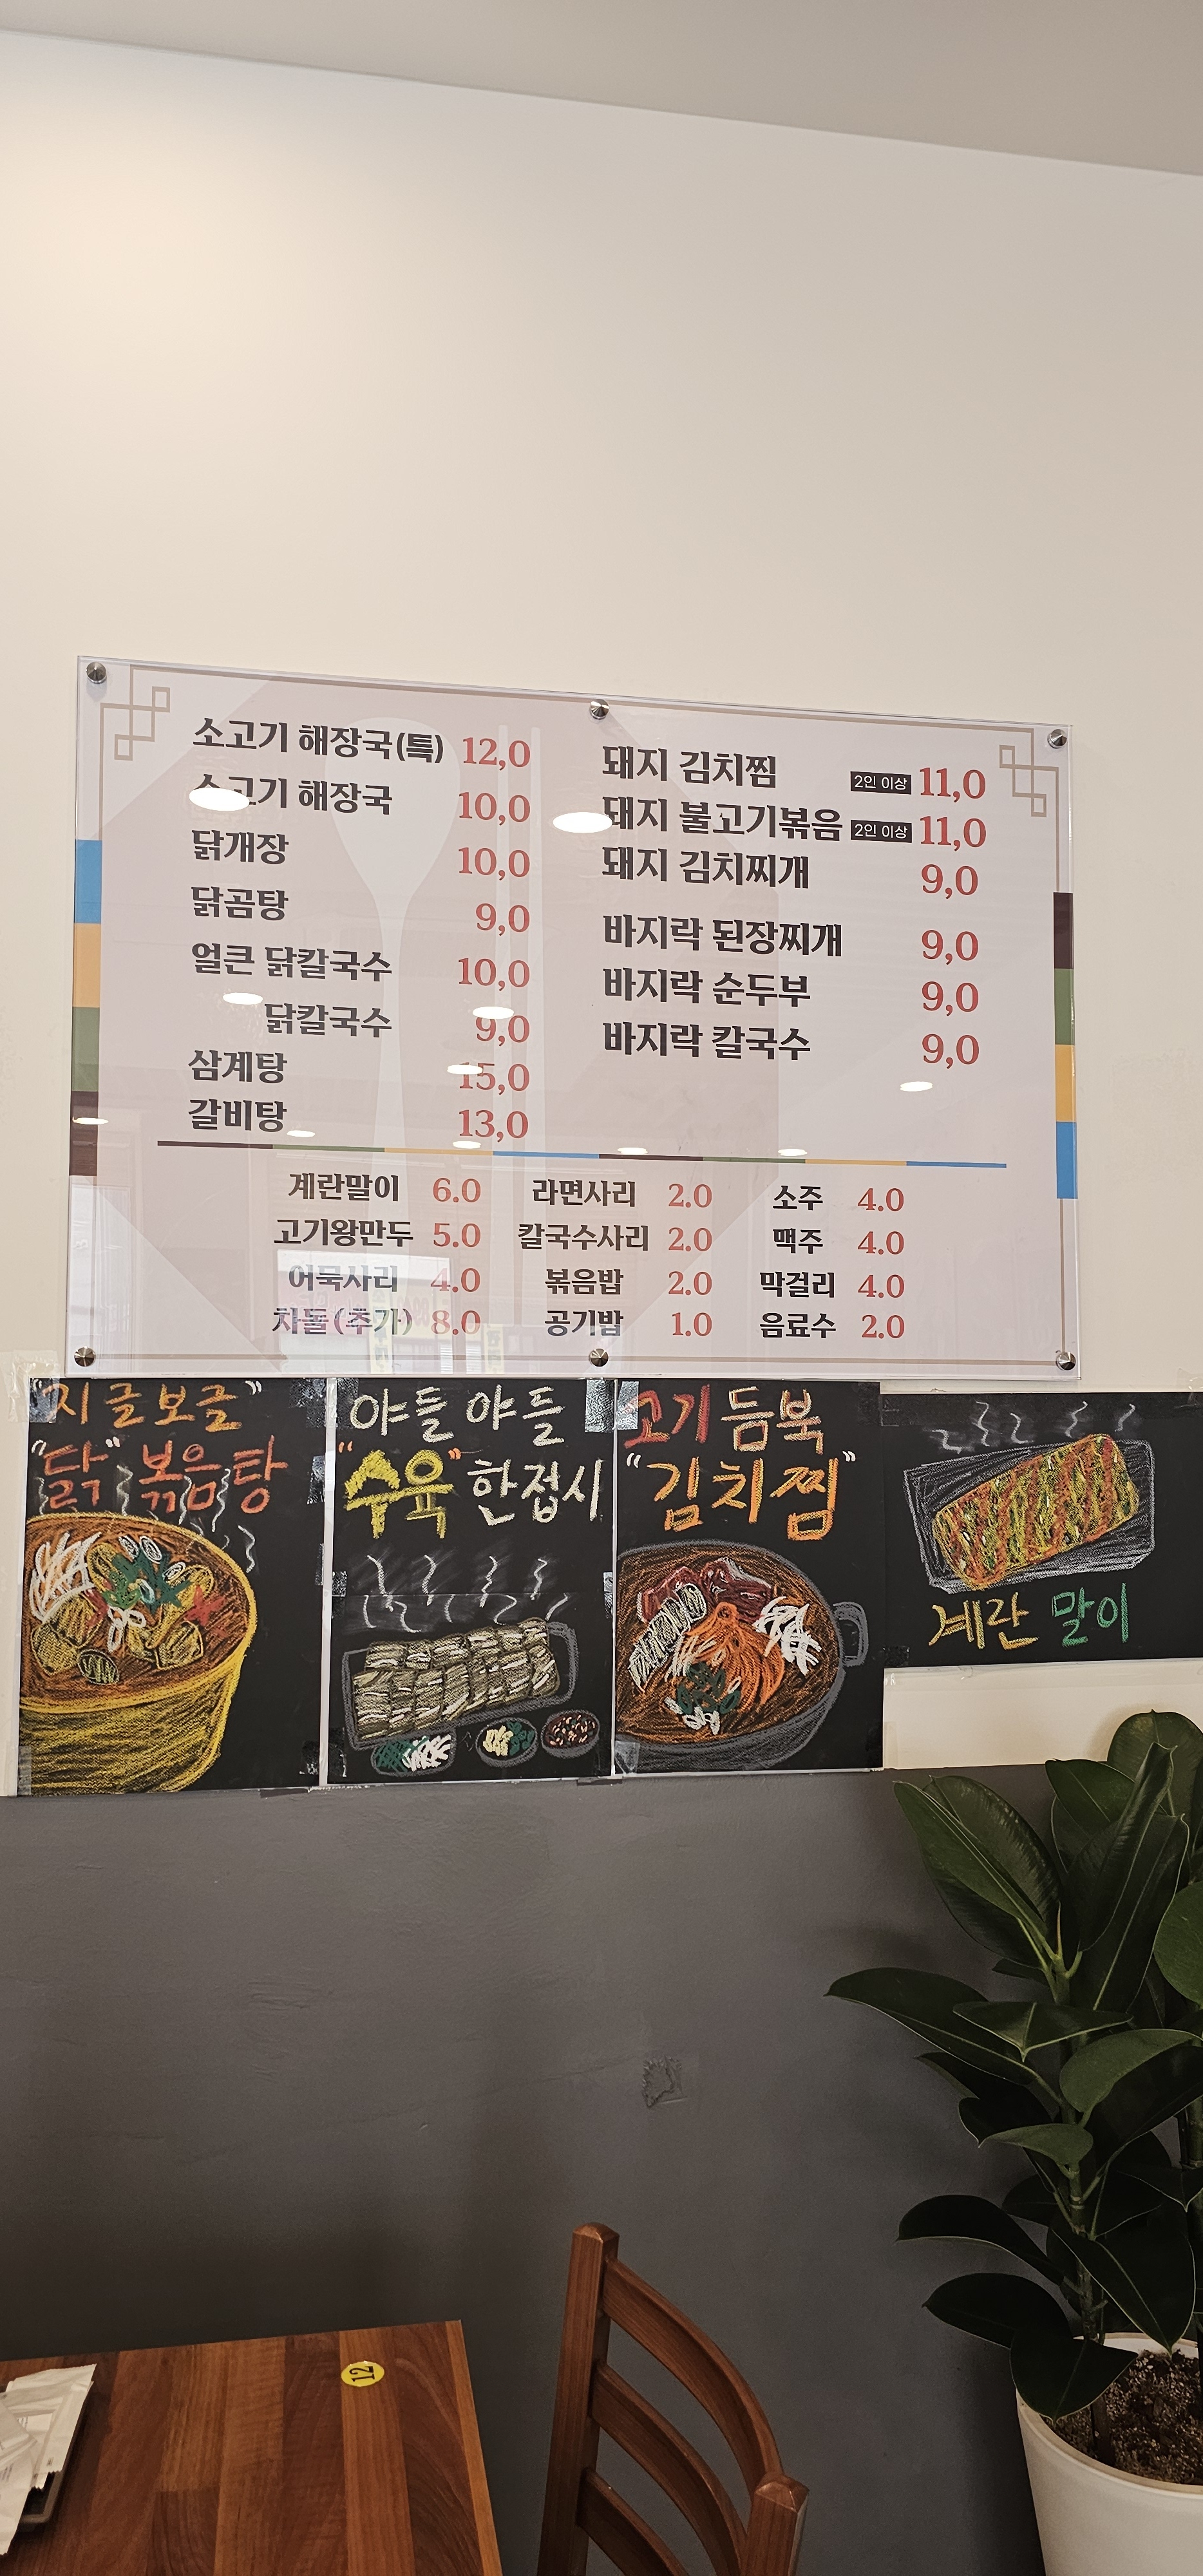 소고기 해장국(특) 12,0
소고기 해장국 10,0
닭개장 10,0
닭곰탕 9,0
얼큰 닭칼국수 10,0
닭칼국수 9,0
삼계탕 15,0
갈비탕 13,0
돼지 김치찜 2인 이상 11,0
돼지 불고기볶음 2인 이상 11,0
돼지 김치찌개 9,0
바지락 된장찌개 9,0
바지락 순두부 9,0
바지락 칼국수 9,0
계란말이 6.0 라면사리 2.0 소주 4.0
고기왕만두 5.0 칼국수사리 2.0 맥주 4.0
어묵사리 4.0 볶음밥 2.0 막걸리 4.0
차돌(추가) 8.0 공기밥 1.0 음료수 2.0
"지글보글"
"닭" 볶음탕
야들 야들
"수육" 한접시
고기 듬북
"김치찜"
계란 말이
12